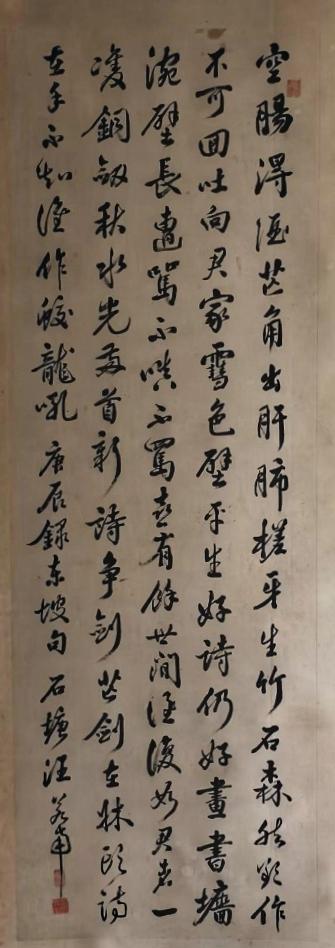 空腸得酒芒角出肝肺槎牙生竹石森然欲作
不可回吐向君家雪色壁平生好詩仍好畫書墻
涴壁長遭罵不嗔不罵喜有餘世間誰復如君者一
雙銅劍秋水光兩首新詩爭劍芒劍在牀頭詩
在手不知誰作蛟龍吼 庚辰錄東坡句 石塘汪